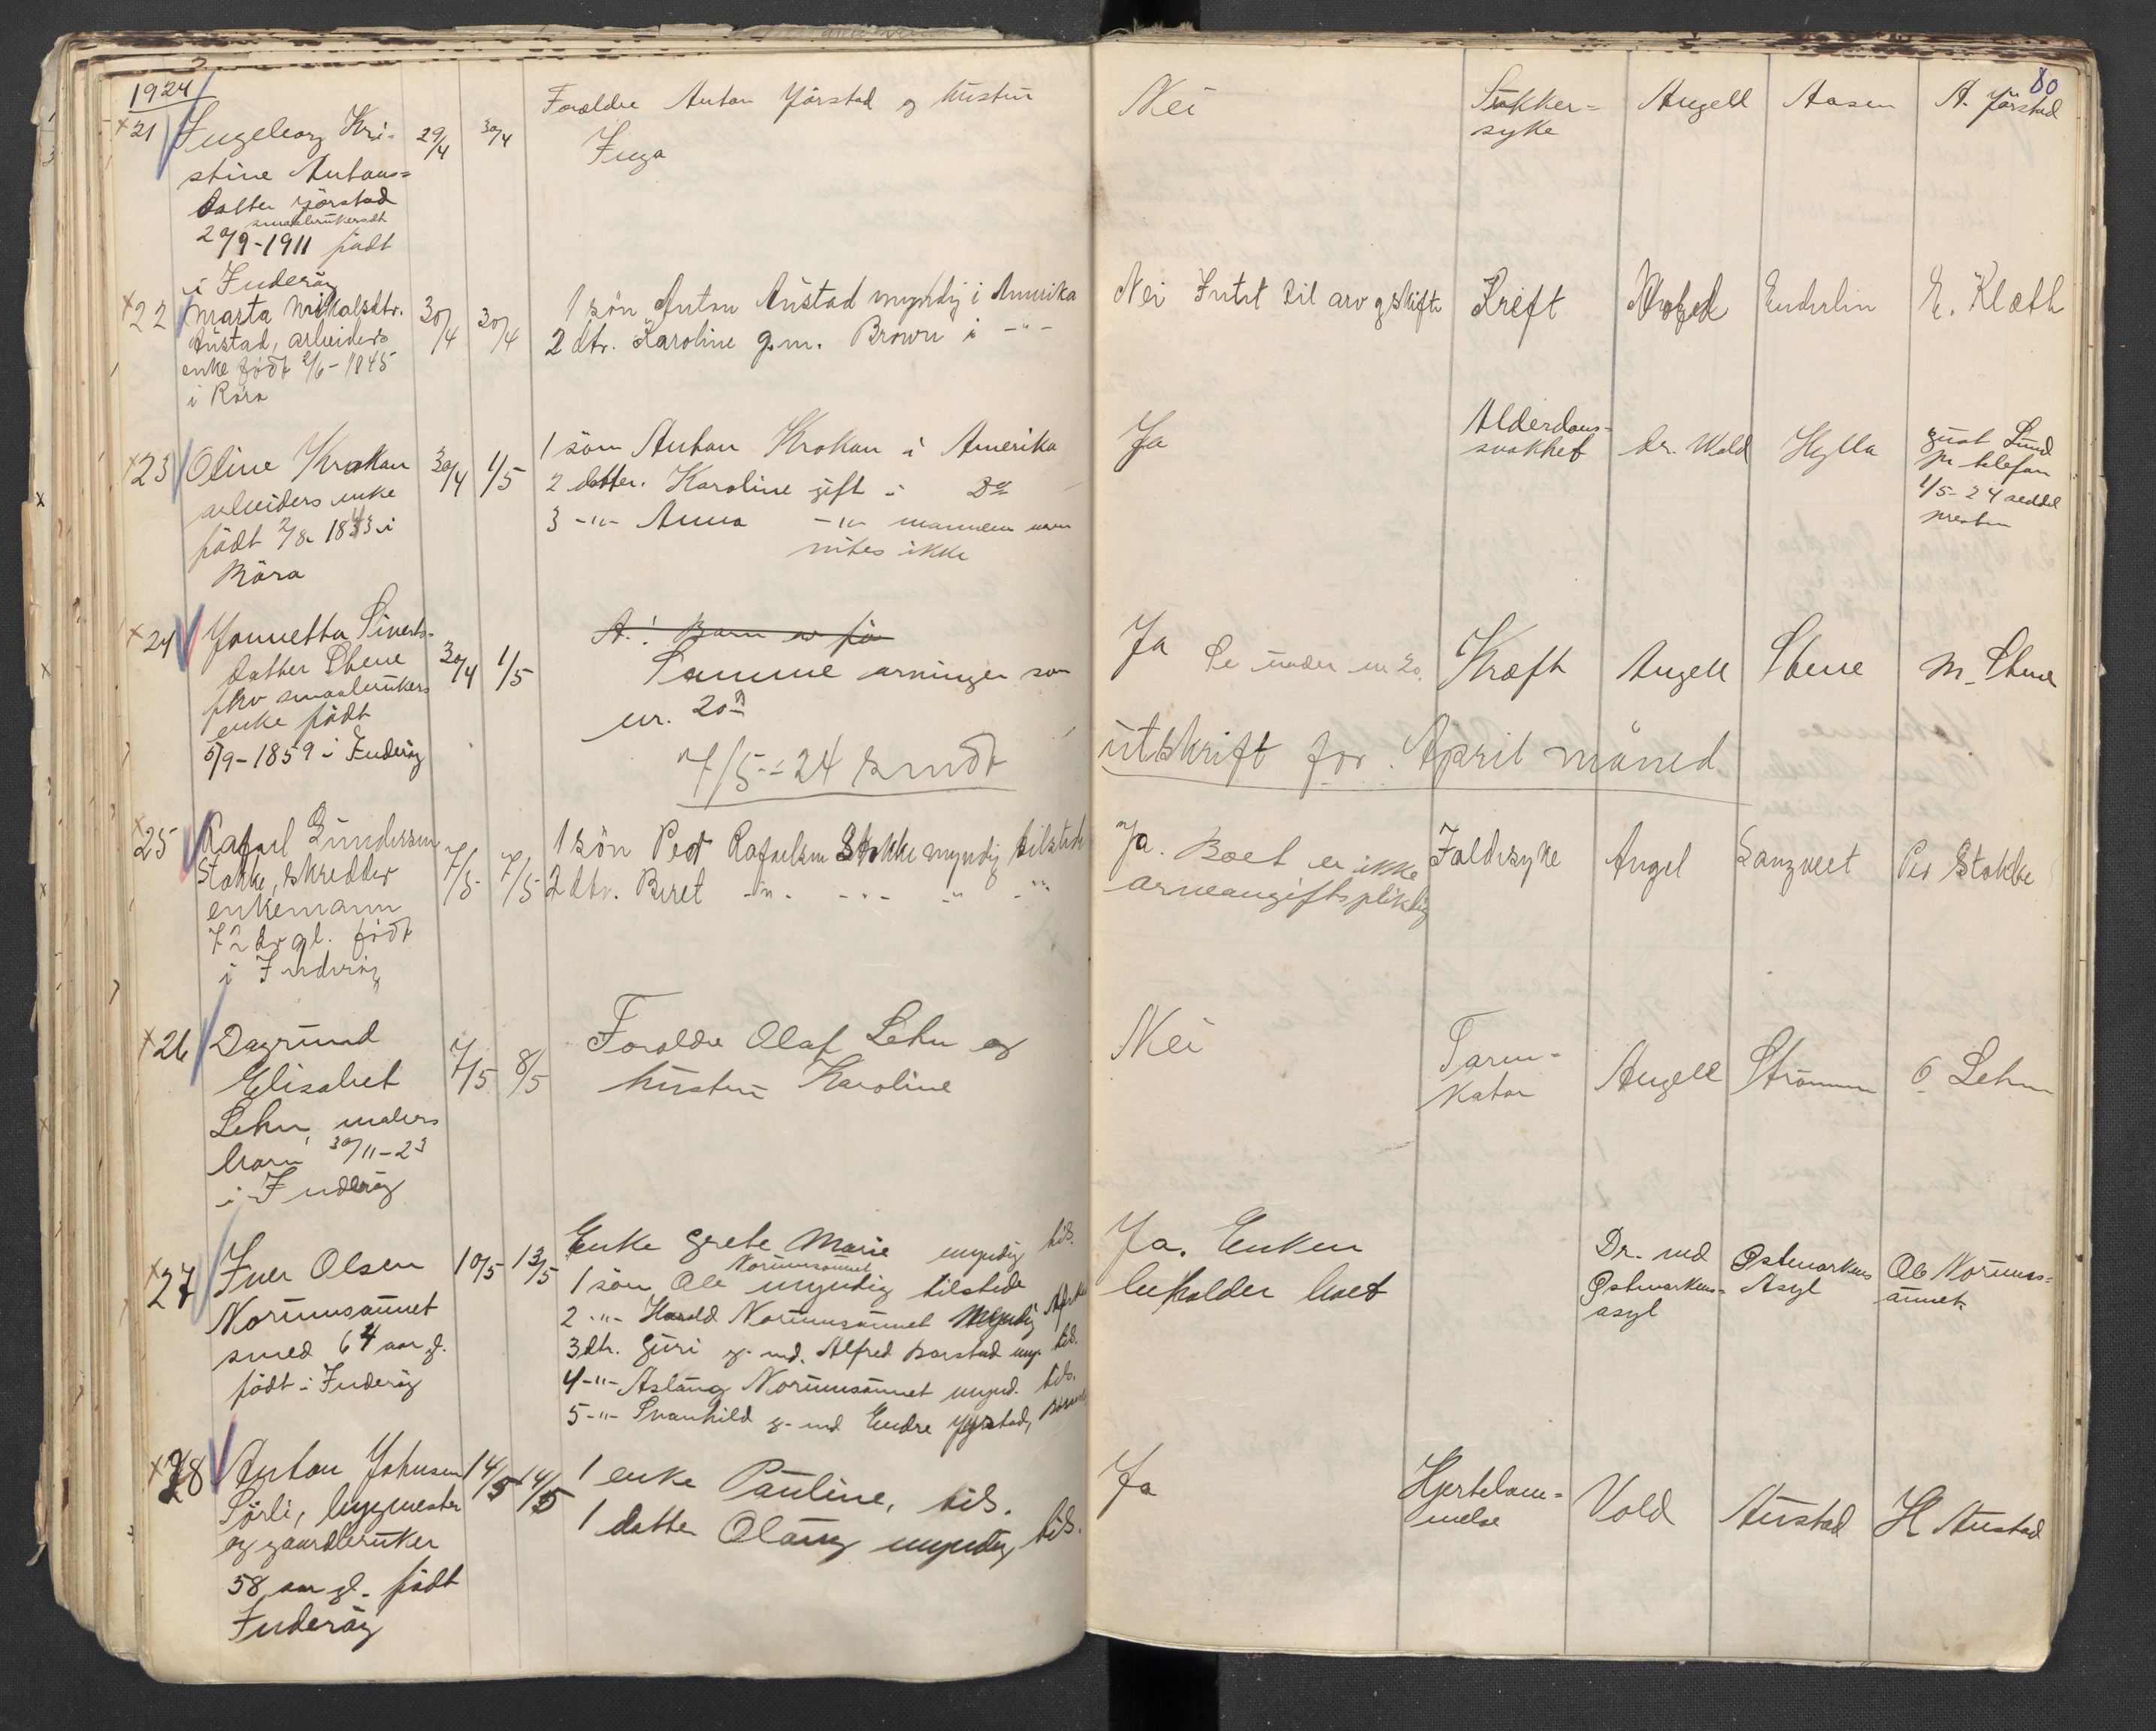 1924
80
×21 Ingeborg Kri-
stine Antons-
datter Jörstad
smaabrukersdt
20/9-1911 födt
i Inderöy
29/4 30/4
Forældre Anton Jörstad og hustru
Inga
Nei
Sukker-
syke
Angell
Aasen
A. Jörstad
×22 Marta Mikalsdtr.
Austad, arbeiders
enke födt 2/6-1845
i Röra
30/4 30/4
1 sön Anton Austad myndig i Amerika
2 dtr. Karoline g.m. Brown i -"-
Nei Intet til arv og skifte
Kreft
Enderlin
E. Kleth
×23 Oline Krokan
arbeiders enke
födt 2/8 1843 i
Röra
30/4 1/5
1 sön Anton Krokan i Amerika
2 datter. Karoline gift i Do
3 -"- Anna -"- mannens navn
vites ikke
Ja
Alderdoms-
svakhet
Dr. Wold
Hylla
Gust Lund
pr telefon
1/5-24 seddel
presten
×24 Jonnetta Siverts-
datter Stene
fhv smaabrukers
enke födt
5/9-1859 i Inderöy
30/4 1/5
A.! Barn av fö
Samme arvinger som
nr. 20
Ja Se under nr 20.
Kræft
Angell
Stene
M. Stene
7/5-24 sendt
utskrift for April måned
×25 Rafael Gundersen
Stokke, skredder
enkemann
72 år gl. födt
i Inderöy
7/5 7/5
1 sön Peder Rafaelsen Stokke myndig tilstede
2 dtr. Beret -"- -"- " -"-
Ja. Boet er ikke
arveavgiftspliktig
Faldesyke
Angel
Langveet
Per Stokke
×26 Dagrund
Elisabet
Lehn, malers
barn 30/11-23
i Inderöy
7/5 8/5
Forældre Olaf Lehn og
hustru Karoline
Nei
Tarm-
katar
Angell
Strömmen
O Lehn
×27 Iver Olsen
Norumsaunet
smed 64 aar g.
födt i Inderöy
10/5 13/5
Enke Grete Marie myndig tils.
Norumsaunet
1 sön Ole myndig tilstede
2 -"- Harald Norumsaunet myndig
3 dtr. Guri g. md. Alfred Barstad myn. tils.
4 -"- Aslaug Norumsaunet mynd. tils.
5 -"- Svanhild g. md Endre Jystad,
Ja. Enken
beholder boet
Dr. ved
Östmarkens-
asyl
Östmarkens
Asyl
Ole Norums-
aunet
×28 Anton Johnsen
Sörli, byggmester
og gaardbruker
58 aar gl. födt
Inderöy
14/5 14/5
1 enke Pauline, tils.
1 datter Olaug myndig, tils.
Ja
Hjertelam-
melse
Vold
Austad
H Austad